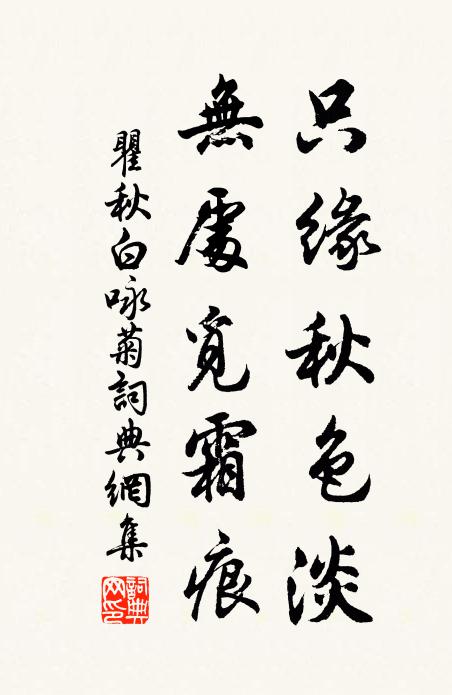 只緣秋色淡
無處覓霜痕
瞿秋白咏菊詞典網集
詞典網印